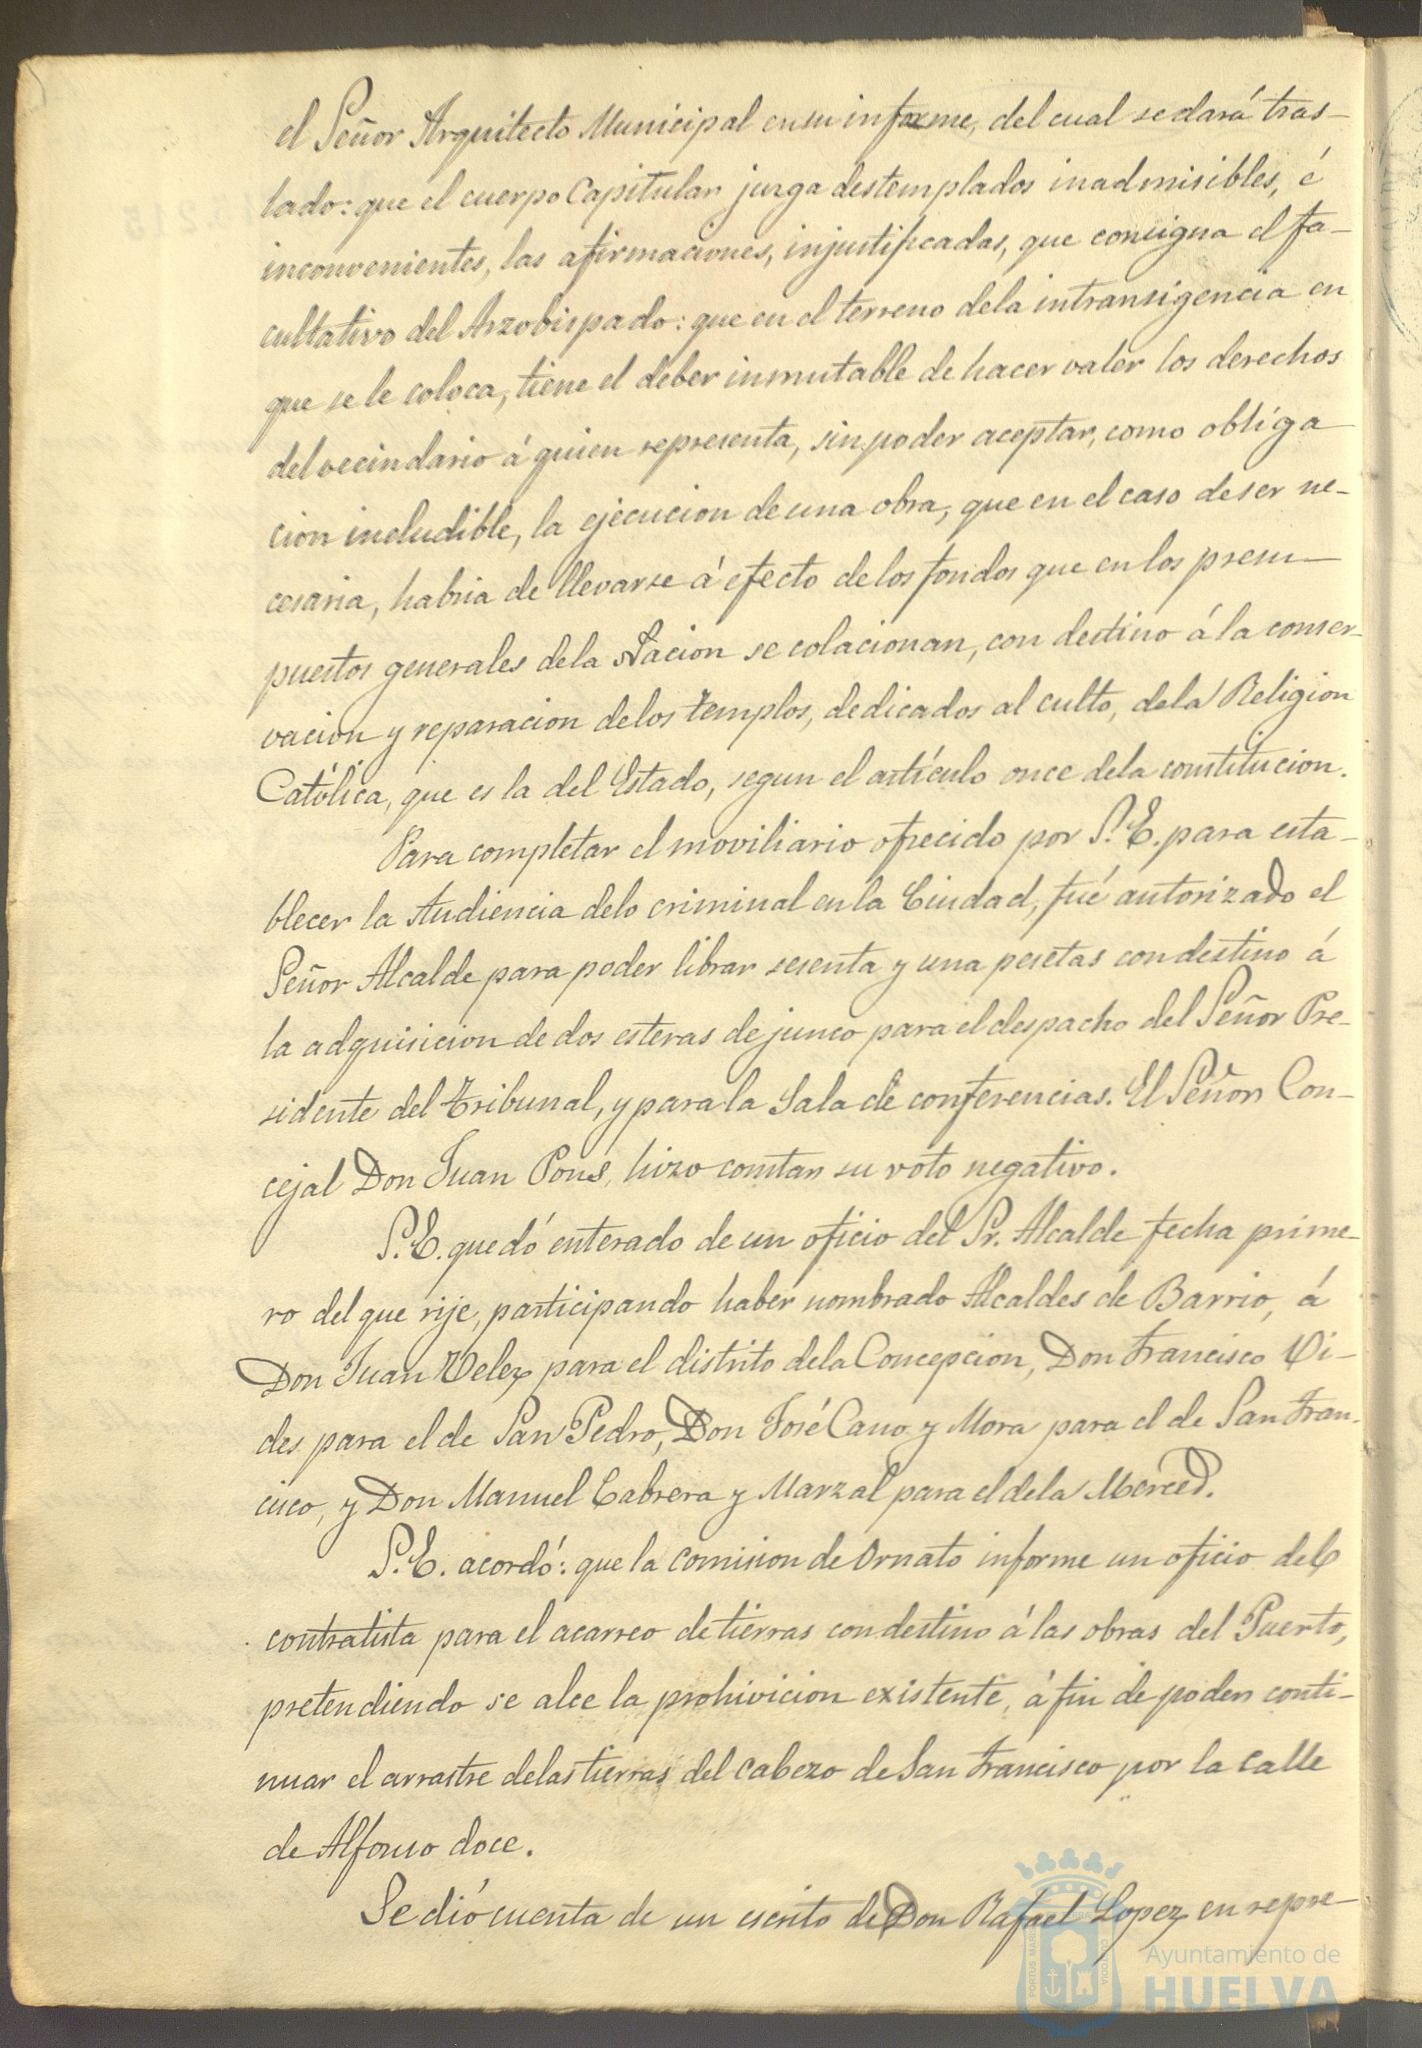 el Señor Arquitecto Municipal en su informe, del cual se dará tras-
lado: que el cuerpo Capitular juzga destemplados inadmisibles, é
inconvenientes, las afirmaciones, injustificadas, que consigna el fa-
cultativo del Arzobispado: que en el terreno de la intransigencia en
que se le coloca, tiene el deber inmutable de hacer valer los derechos
del vecindario á quien representa, sin poder aceptar, como obliga
cion ineludible, la ejecucion de una obra, que en el caso de ser ne-
cesaria, habria de llevarse á efecto de los fondos que en los presu-
puestos generales de la Nacion se colacionan, con destino á la conser-
vacion y reparacion de los templos, dedicados al culto, de la Religion
Católica, que es la del Estado, segun el artículo once de la constitucion.
Para completar el moviliario ofrecido por S.E. para esta-
blecer la Audiencia de lo criminal en la Ciudad, fué autorizado el
Señor Alcalde para poder librar sesenta y una pesetas con destino á
la adquisicion de dos esteras de junco para el despacho del Señor Pre-
sidente del Tribunal, y para la Sala de conferencias. El Señor Con-
cejal Don Juan Pons, hizo constar su voto negativo.
S.E. quedó enterado de un oficio del Sr. Alcalde fecha prime-
ro del que rije, participando haber nombrado Alcaldes de Barrio, á
Don Juan Velez para el distrito de la Concepcion, Don Francisco Vi-
des para el de San Pedro, Don José Cano y Mora para el de San Fran-
cisco, y Don Manuel Cabrera y Marzal para el de la Merced.
S.E. acordó: que la comision de Ornato informe un oficio del
contratista para el acarreo de tierras con destino á las obras del Puerto,
pretendiendo se alce la prohivicion existente, á fin de poder conti-
nuar el arrastre de las tierras del cabezo de San Francisco por la calle
de Alfonso doce.
Se dió cuenta de un escrito de Don Rafael Lopez en repre-
Ayuntamiento de
HUELVA